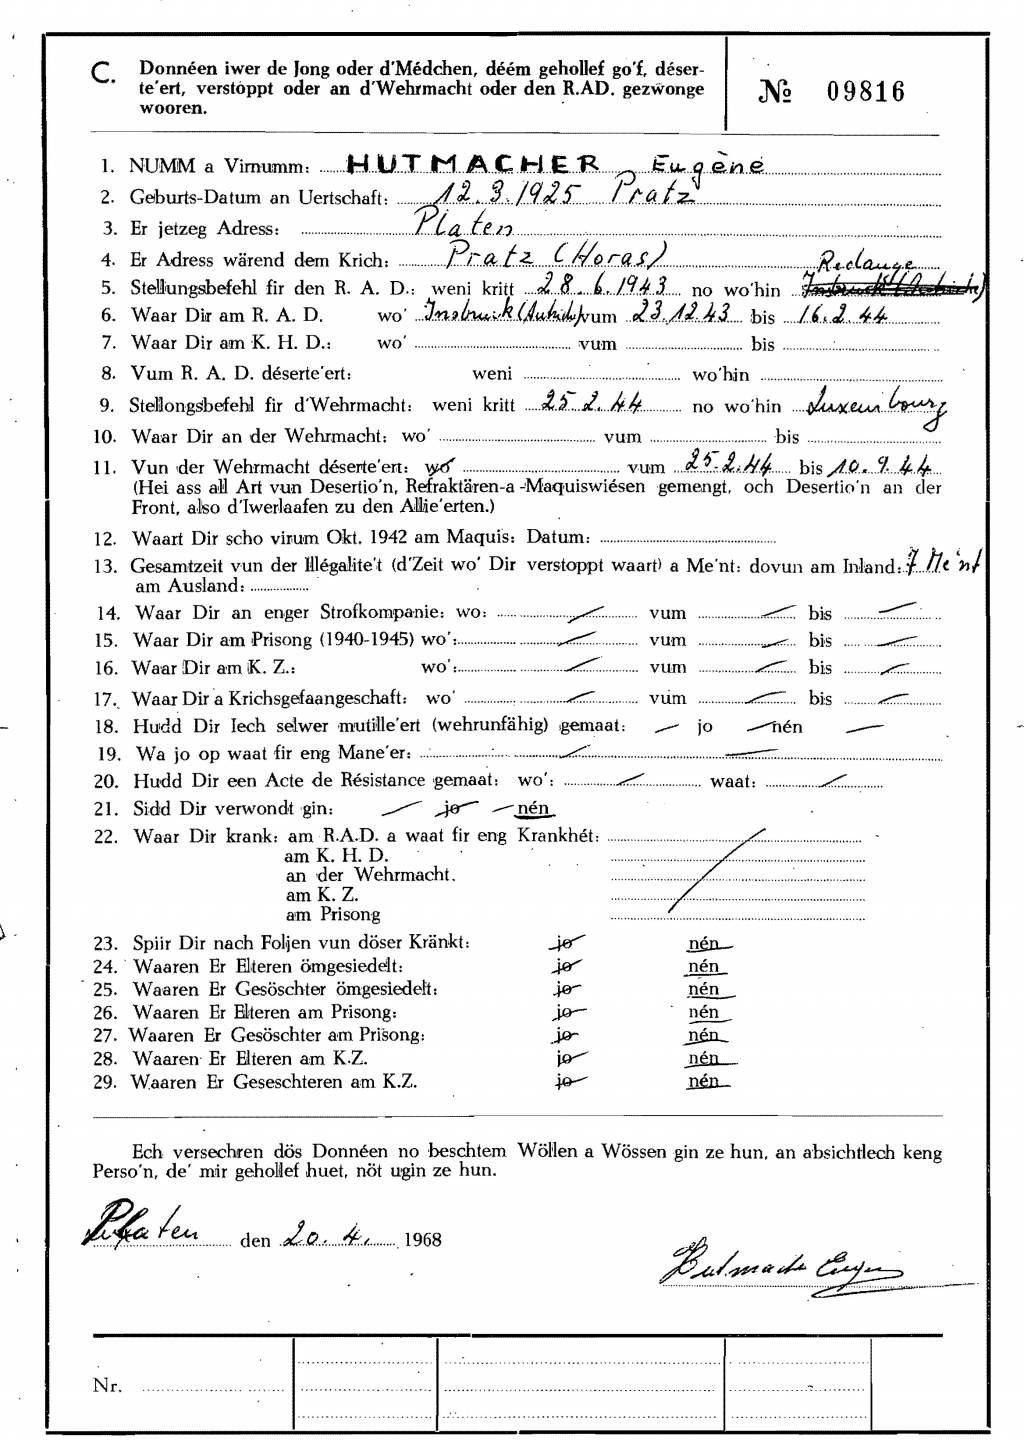 C. Donnéen iwer de Jong oder d'Médchen, déém gehollef go'f, déser-
te'ert, verstoppt oder an d'Wehrmacht oder den R.AD. gezwonge
wooren.
№ 09816
1. NUMM a Virnumm: HUTMACHER Eugène
2. Geburts-Datum an Uertschaft: 12.3.1925 Pratz
3. Er jetzeg Adress: Platen
4. Er Adress wärend dem Krich: Pratz (Horas)
5. Stellungsbefehl fir den R. A. D.: weni kritt 28.6.1943 no wo'hin Redange
6. Waar Dir am R. A. D. wo' Insbruck vum 23.12.43 bis 16.2.44
7. Waar Dir am K. H. D.: wo' vum bis
8. Vum R. A. D. déserte'ert: weni wo'hin
9. Stellongsbefehl fir d'Wehrmacht: weni kritt 25 2.44 no wo'hin Luxembourg
10. Waar Dir an der Wehrmacht: wo' vum bis
11. Vun der Wehrmacht déserte'ert: wo' vum 25.2.44 bis 10.9.44
(Hei ass all Art vun Desertio'n, Refraktären-a -Maquiswiésen gemengt, och Desertio'n an der
Front, also d'Iwerlaafen zu den Allie'erten.)
12. Waart Dir scho virum Okt. 1942 am Maquis: Datum:
13. Gesamtzeit vun der Illégalite't (d'Zeit wo' Dir verstoppt waart) a Me'nt: dovun am Inland: 7 Me'nt
am Ausland:
14. Waar Dir an enger Strofkompanie: wo: vum bis
15. Waar Dir am Prisong (1940-1945) wo': vum bis
16. Waar Dir am K. Z.: wo': vum bis
17. Waar Dir a Krichsgefaangeschaft: wo' vum bis
18. Hudd Dir Iech selwer mutille'ert (wehrunfähig) gemaat: jo nén
19. Wa jo op waat fir eng Mane'er:
20. Hudd Dir een Acte de Résistance gemaat: wo': waat:
21. Sidd Dir verwondt gin: jo nén
22. Waar Dir krank: am R.A.D. a waat fir eng Krankhét:
am K. H. D.
an der Wehrmacht.
am K. Z.
am Prisong
23. Spiir Dir nach Foljen vun döser Kränkt: jo nén
24. Waaren Er Elteren ömgesiedelt: jo nén
25. Waaren Er Gesöschter ömgesiedelt: jo nén
26. Waaren Er Elteren am Prisong: jo nén
27. Waaren Er Gesöschter am Prisong: jo nén
28. Waaren Er Elteren am K.Z. jo nén
29. Waaren Er Geseschteren am K.Z. jo nén
Ech versechren dös Donnéen no beschtem Wöllen a Wössen gin ze hun, an absichtlech keng
Perso'n, de' mir gehollef huet, nöt ugin ze hun.
Platen den 20. 4. 1968
Hutmacher Eugen
Nr.